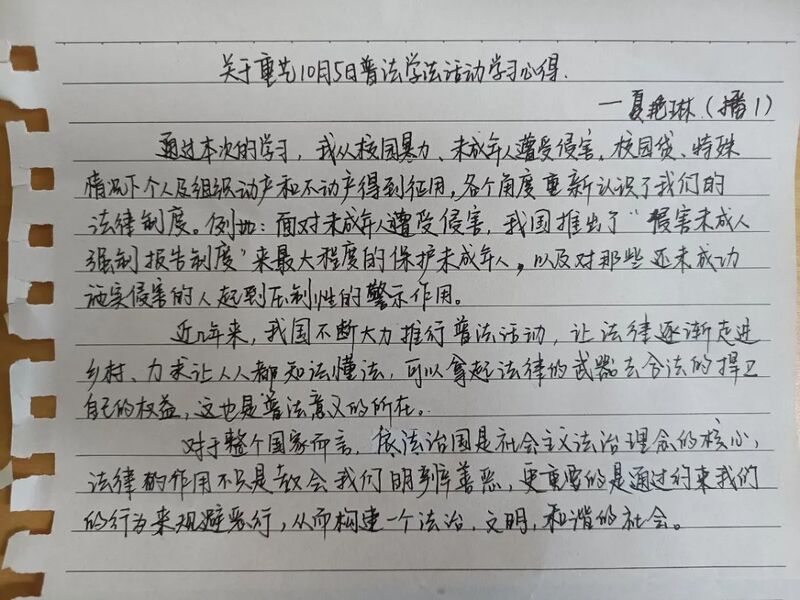 关于重艺10月5日普法学法活动学习心得.
—夏艳琳(播1)
通过本次的学习,我从校园暴力、未成年人遭受侵害、校园贷、特殊
情况下个人及组织动产和不动产得到征用,各个角度重新认识了我们的
法律制度。例如:面对未成年人遭受侵害,我国推出了“侵害未成人
强制报告制度”来最大程度的保护未成年人,以及对那些还未成功
施实侵害的人起到压制性的警示作用。
近几年来,我国不断大力推行普法活动,让法律逐渐走进
乡村、力求让人人都知法懂法,可以拿起法律的武器去合法的捍卫
自己的权益,这也是普法意义的所在。
对于整个国家而言,依法治国是社会主义法治理念的核心,
法律的作用不只是教会我们明辨善恶,更重要的是通过约束我们
的行为来规避恶行,从而构建一个法治,文明,和谐的社会。